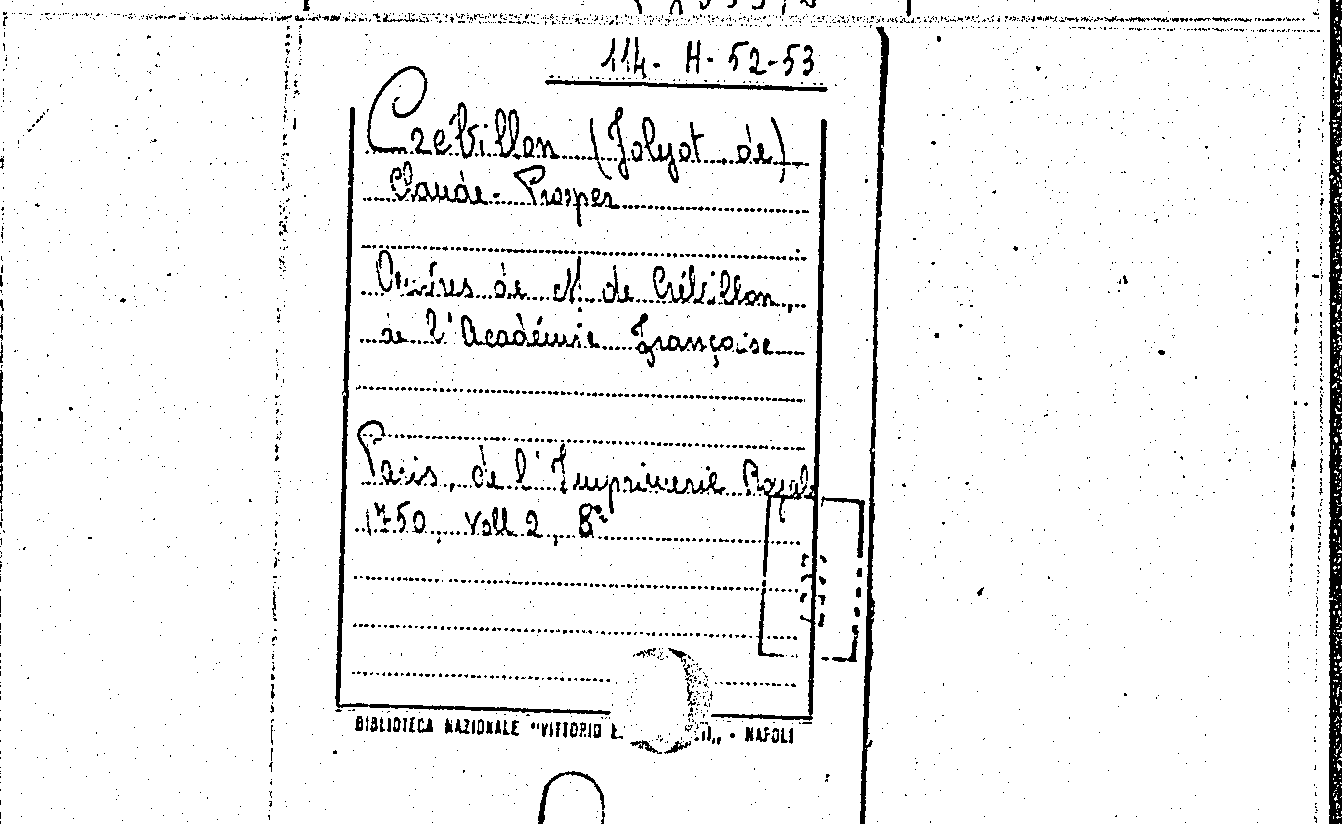 114. H. 52-53
Crebillon (Jolyot de)
Claude-Prosper
Oeuvres de M. de Crébillon,
de l'Académie Française
Paris, de l'Imprimerie Royale
1750, Voll 2, 8º
BIBLIOTECA NAZIONALE "VITTORIO E. III„ - NAPOLI